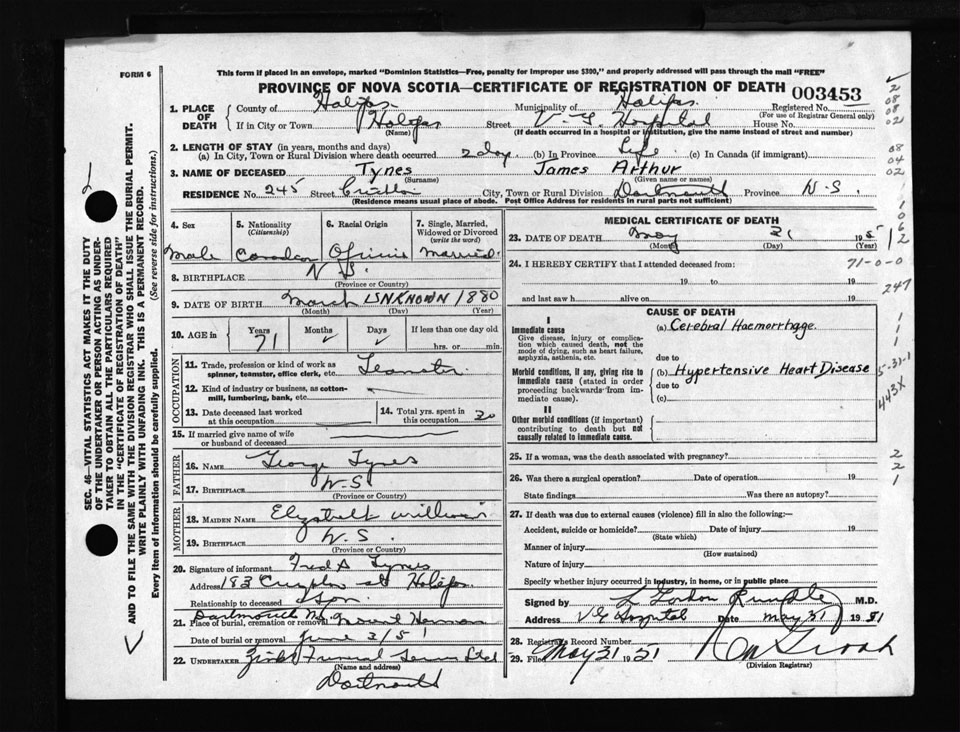 FORM 6
This form if placed in an envelope, marked "Dominion Statistics—Free, penalty for improper use $300," and properly addressed will pass through the mail "FREE"
PROVINCE OF NOVA SCOTIA—CERTIFICATE OF REGISTRATION OF DEATH 003453
1. PLACE OF DEATH County of Halifax Municipality of Halifax Registered No.
If in City or Town Halifax (Name) Street V. G. Hospital House No. (For use of Registrar General only)
(If death occurred in a hospital or institution, give the name instead of street and number)
2. LENGTH OF STAY (in years, months and days)
(a) In City, Town or Rural Division where death occurred 2 day (b) In Province Life (c) In Canada (if immigrant)
3. NAME OF DECEASED Tynes James Arthur
(Surname) (Given name or names)
RESIDENCE No. 245 Street City, Town or Rural Division Dartmouth Province N.S.
(Residence means usual place of abode. Post Office Address for residents in rural parts not sufficient)
4. Sex Male
5. Nationality (Citizenship) Canadian
6. Racial Origin
7. Single, Married, Widowed or Divorced (write the word) Married
8. BIRTHPLACE
(Province or Country)
9. DATE OF BIRTH March UNKNOWN 1880
(Month) (Day) (Year)
10. AGE in Years 71 Months ✓ Days ✓ If less than one day old hrs. or min.
OCCUPATION
11. Trade, profession or kind of work as spinner, teamster, office clerk, etc. Teamster
12. Kind of industry or business, as cotton-mill, lumbering, bank, etc.
13. Date deceased last worked at this occupation
14. Total yrs. spent in this occupation 20
15. If married give name of wife or husband of deceased
FATHER
16. NAME George Tynes
17. BIRTHPLACE N.S
(Province or Country)
MOTHER
18. MAIDEN NAME
19. BIRTHPLACE N.S.
(Province or Country)
20. Signature of informant Fred A Tynes
Address 183 St Halifax
Relationship to deceased Son
21. Place of burial, cremation or removal Dartmouth Mount Hermon
Date of burial or removal June 3/51
22. UNDERTAKER Funeral
(Name and address)
Dartmouth
MEDICAL CERTIFICATE OF DEATH
23. DATE OF DEATH May 31 195
(Month) (Day) (Year)
24. I HEREBY CERTIFY that I attended deceased from: 71-0-0
19 to 19
and last saw h alive on 19
CAUSE OF DEATH
I
Immediate cause (a) Cerebral Haemorrhage
Give disease, injury or complication which caused death, not the mode of dying, such as heart failure, asphyxia, asthenia, etc.
due to
Morbid conditions, if any, giving rise to immediate cause (stated in order proceeding backwards from immediate cause). (b) Hypertensive Heart Disease
due to
(c)
II
Other morbid conditions (if important) contributing to death but not causally related to immediate cause.
25. If a woman, was the death associated with pregnancy?
26. Was there a surgical operation? Date of operation 19
State findings Was there an autopsy?
27. If death was due to external causes (violence) fill in also the following:—
Accident, suicide or homicide? Date of injury 19
(State which)
Manner of injury
(How sustained)
Nature of injury
Specify whether injury occurred in industry, in home, or in public place
Signed by L Gordon Rundle M.D.
Address V G Hospital Date May 31 1951
28. Registrar's Record Number
29. Filed May 31 1951
(Division Registrar)
SEC. 46—VITAL STATISTICS ACT MAKES IT THE DUTY
OF THE UNDERTAKER OR PERSON ACTING AS UNDER-
TAKER TO OBTAIN ALL THE PARTICULARS REQUIRED
IN THE "CERTIFICATE OF REGISTRATION OF DEATH"
AND TO FILE THE SAME WITH THE DIVISION REGISTRAR WHO SHALL ISSUE THE BURIAL PERMIT.
WRITE PLAINLY WITH UNFADING INK. THIS IS A PERMANENT RECORD.
Every item of information should be carefully supplied. (See reverse side for instructions.)
2
08
08
02
08
04
02
247
443X
2
2
1